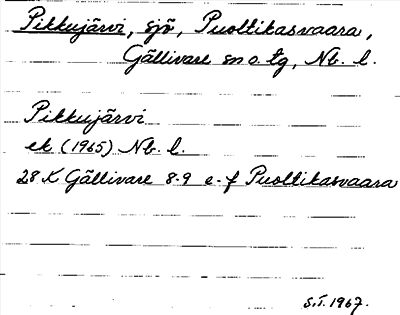 Pikkujärvi, sjö, Puoltikasvaara,
Gällivare sn o. tg, Nb. l.
Pikkujärvi
ek (1965) Nb. l.
28 K Gällivare 8-9 e-f Puoltikasvaara
S.I. 1967.